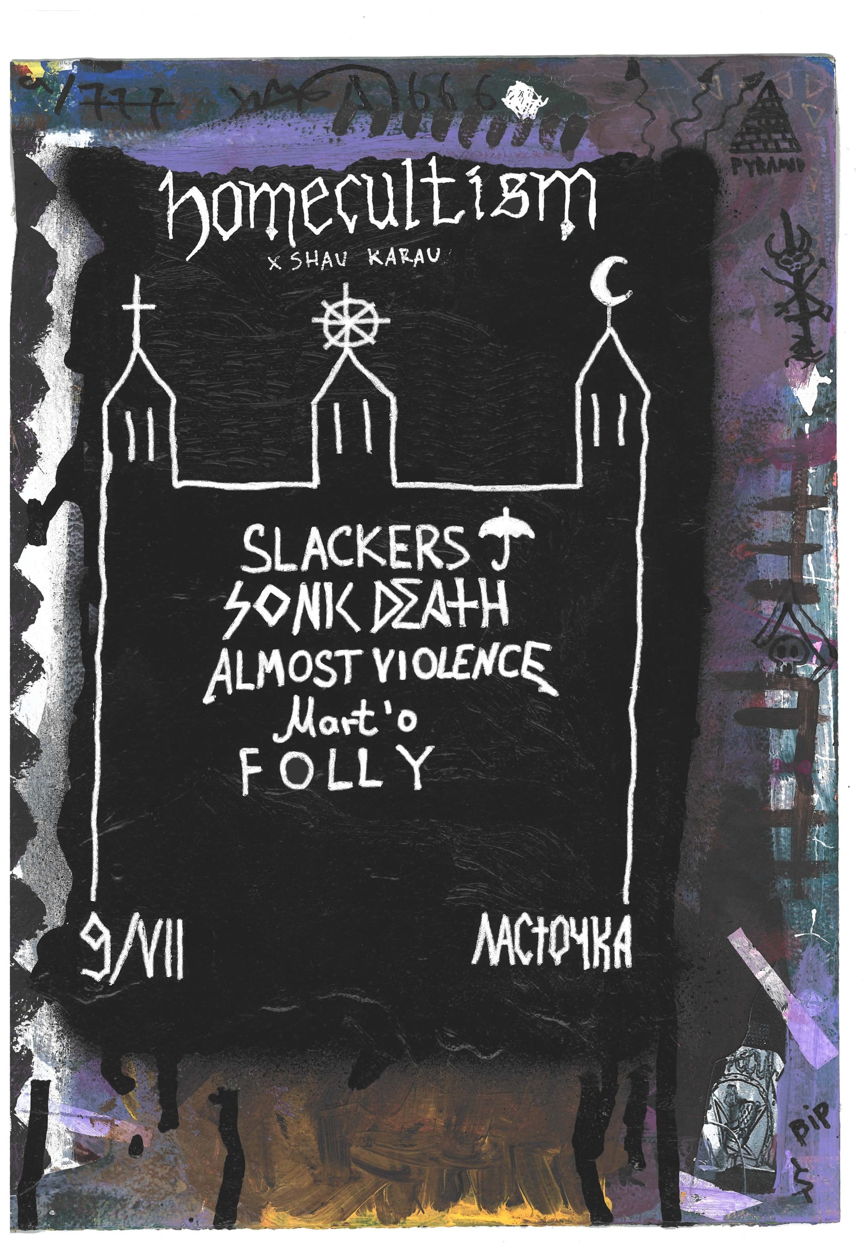 /777 666
PYRAMID
homecultism
x SHAU KARAU
SLACKERS
SONIC DEATH
ALMOST VIOLENCE
Mart'o
FOLLY
9/VII
ЛАСТОЧКА
BIP